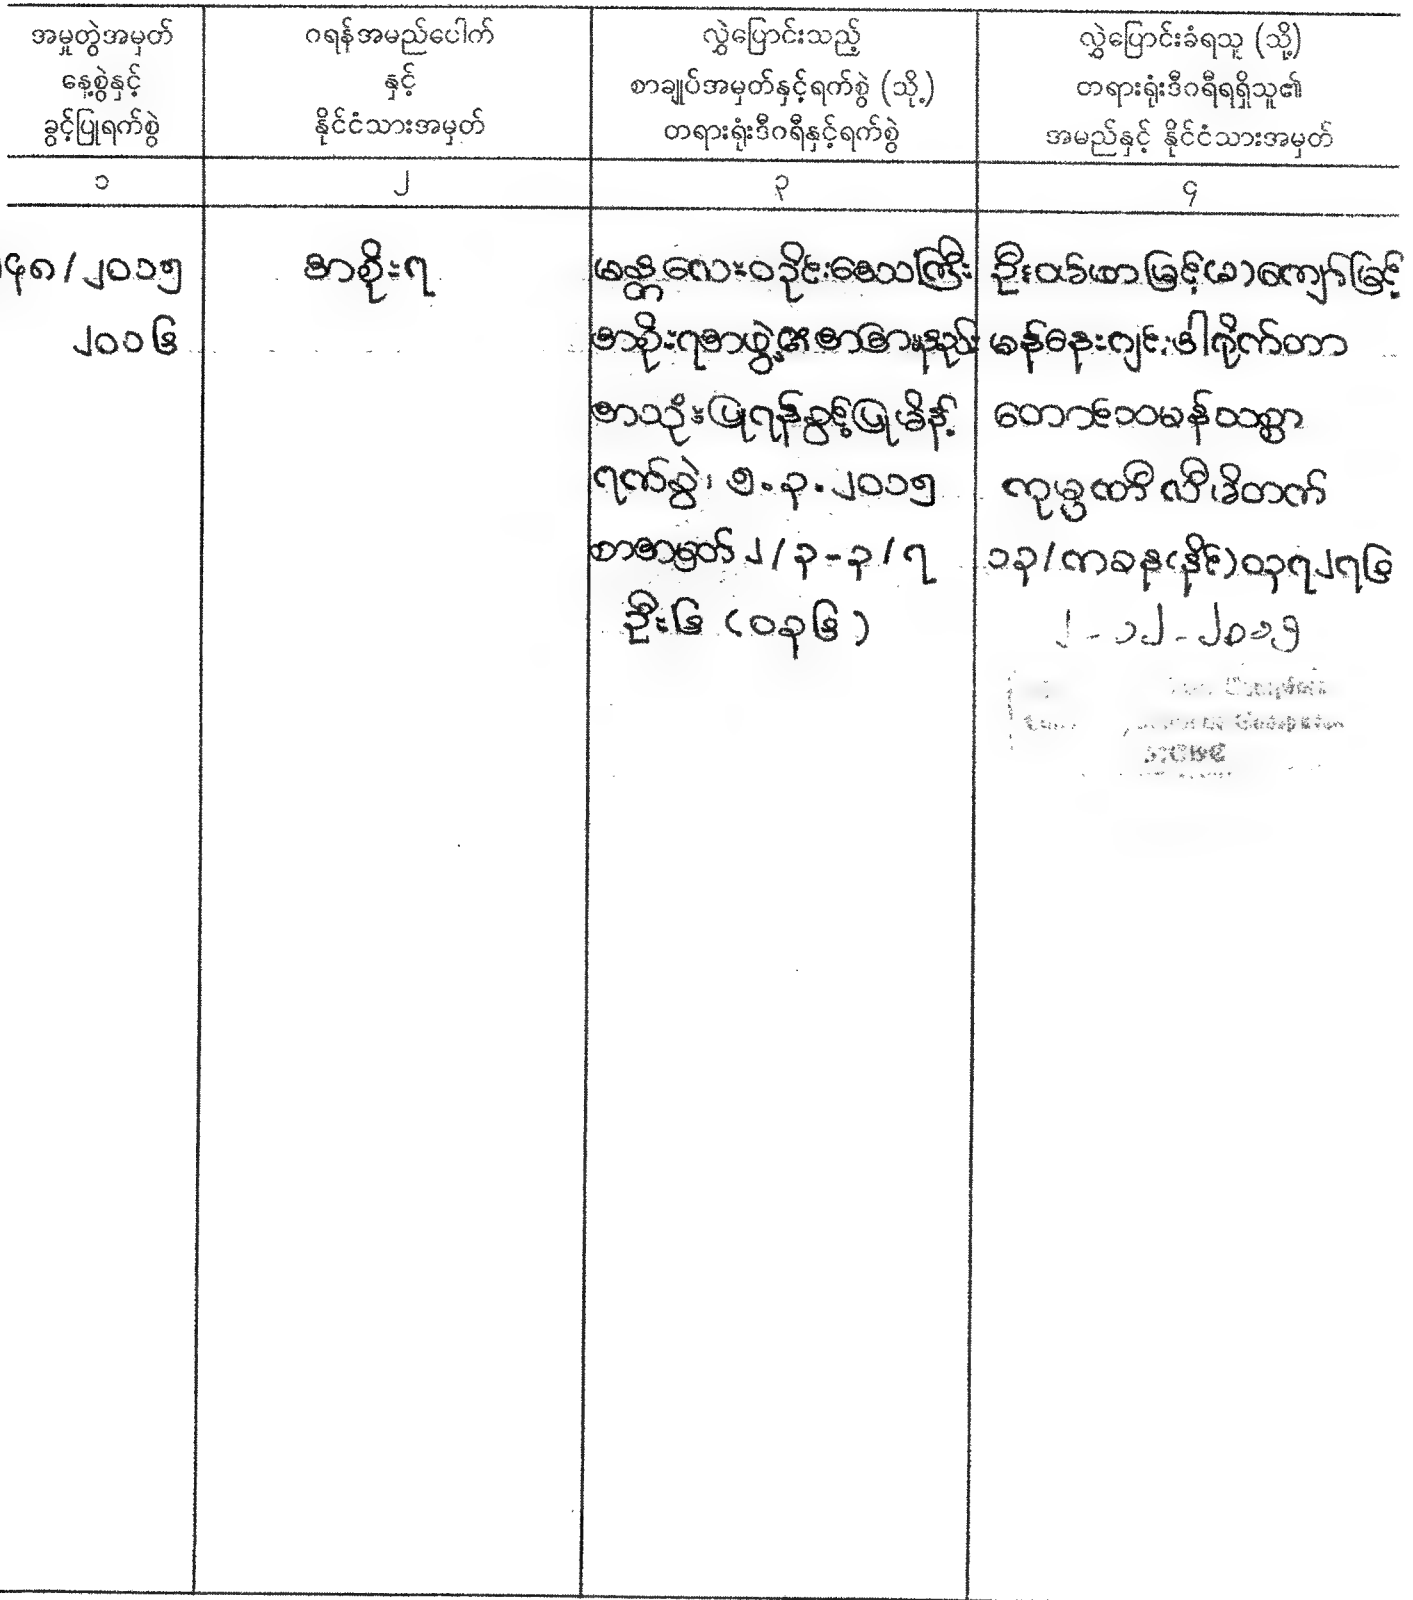 အမှုတွဲအမှတ်
နေ့စွဲနှင့်
ခွင့်ပြုရက်စွဲ
ဂရန်အမည်ပေါက်
နှင့်
နိုင်ငံသားအမှတ်
လွှဲပြောင်းသည့်
စာချုပ်အမှတ်နှင့်ရက်စွဲ (သို့)
တရားရုံးဒီဂရီနှင့်ရက်စွဲ
လွှဲပြောင်းခံရသူ (သို့)
တရားရုံးဒီဂရီရရှိသူ၏
အမည်နှင့် နိုင်ငံသားအမှတ်
၁
၂
၃
၄
၄၈/၂၀၁၅
၂၀၁၆
အစိုးရ
မန္တလေးတိုင်းဒေသကြီး
အစိုးရအဖွဲ့၏အစည်း
အသုံးပြုရန်ခွင့်ပြုမိန့်
ရက်စွဲ၊ ၅.၃.၂၀၁၅
စာအမှတ် ၂/၃-၃/၇
ဦး၆ (၀၃၆)
ဦးဝဏ်ဖာမြင့်(ခ)ကျော်မြင့်
မန်နေးဂျင်းဒါရိုက်တာ
တောင်သမန်
ကုမ္ပဏီလီမိတက်
၁၃/ကခန(နိုင်)၀၃၇၂၇၆
၂-၁၂-၂၀၁၅